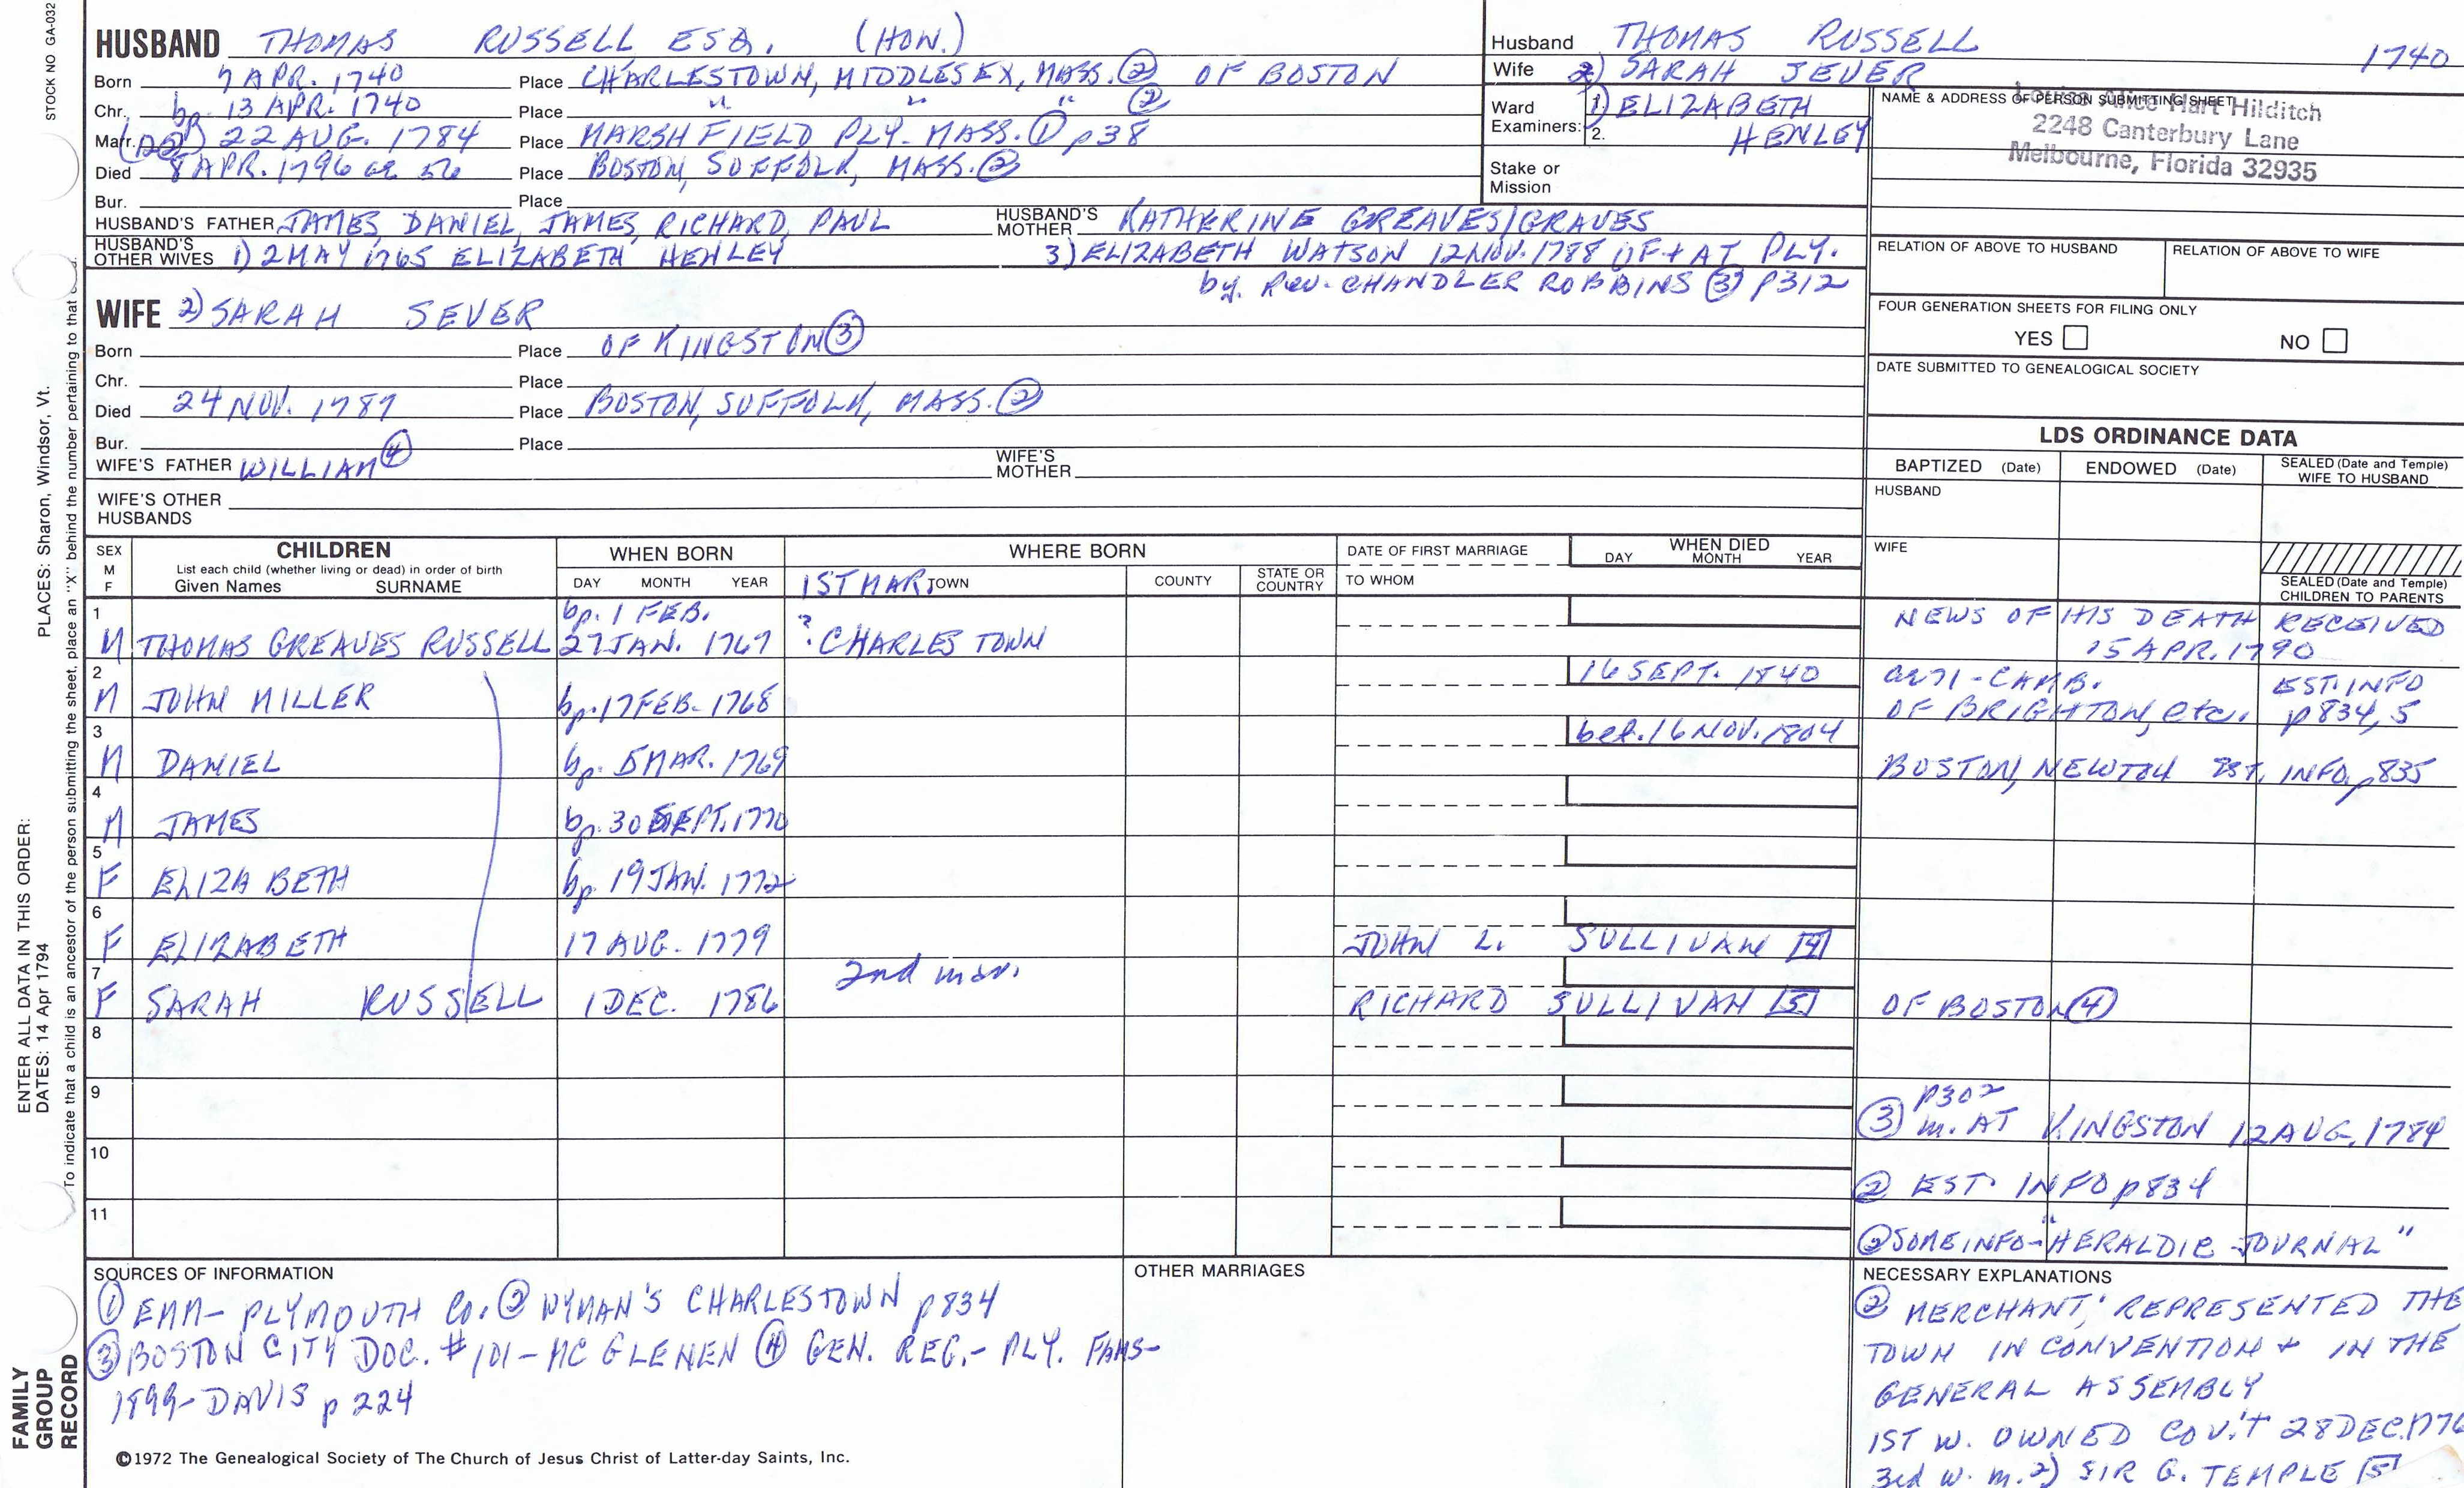 STOCK NO GA-032
HUSBAND THOMAS RUSSELL ESQ. (HON.)
Born 7 APR. 1740 Place CHARLESTOWN, MIDDLESEX, MASS. ② OF BOSTON
Chr. bp. 13 APR. 1740 Place " " " ②
Marr. 22 AUG. 1784 Place MARSHFIELD PLY. MASS. ① p38
Died 8 APR. 1796 ae 56 Place BOSTON, SUFFOLK, MASS. ②
Bur. Place
HUSBAND'S FATHER JAMES, DANIEL, JAMES, RICHARD, PAUL HUSBAND'S MOTHER KATHERINE GREAVES/GRAVES
HUSBAND'S OTHER WIVES 1) 2 MAY 1765 ELIZABETH HENLEY 3) ELIZABETH WATSON 12 NOV. 1788 OF + AT PLY.
by. Rev. CHANDLER ROBBINS ③ P312
WIFE 2) SARAH SEVER
Born Place OF KINGSTON ③
Chr. Place
Died 24 NOV. 1787 Place BOSTON, SUFFOLK, MASS. ②
Bur. Place
WIFE'S FATHER WILLIAM ④ WIFE'S MOTHER
WIFE'S OTHER HUSBANDS
Husband THOMAS RUSSELL 1740
Wife 2) SARAH SEVER
Ward Examiners: 1) ELIZABETH
2. HENLEY
Stake or Mission
NAME & ADDRESS OF PERSON SUBMITTING SHEET
Louise Alice Hart Hilditch
2248 Canterbury Lane
Melbourne, Florida 32935
RELATION OF ABOVE TO HUSBAND RELATION OF ABOVE TO WIFE
FOUR GENERATION SHEETS FOR FILING ONLY
YES NO
DATE SUBMITTED TO GENEALOGICAL SOCIETY
LDS ORDINANCE DATA
BAPTIZED (Date) ENDOWED (Date) SEALED (Date and Temple) WIFE TO HUSBAND
HUSBAND
WIFE
SEALED (Date and Temple) CHILDREN TO PARENTS
SEX M F CHILDREN WHEN BORN WHERE BORN DATE OF FIRST MARRIAGE WHEN DIED
List each child (whether living or dead) in order of birth
Given Names SURNAME DAY MONTH YEAR 1ST MAR. TOWN COUNTY STATE OR COUNTRY TO WHOM DAY MONTH YEAR
1 bp. 1 FEB. NEWS OF HIS DEATH RECEIVED
M THOMAS GREAVES RUSSELL 27 JAN. 1767 ? CHARLESTOWN 15 APR. 1790
2 16 SEPT. 1840 ae 71 - CAMB. EST. INFO
M JOHN MILLER bp. 17 FEB. 1768 OF BRIGHTON, etc. p834,5
3 bef. 16 NOV. 1804
M DANIEL bp. 5 MAR. 1769 BOSTON, NEWTON EST. INFO, p835
4
M JAMES bp. 30 SEPT. 1770
5
F ELIZABETH bp. 19 JAN. 1772
6
F ELIZABETH 17 AUG. 1779 JOHN L. SULLIVAN [4]
7 2nd mar.
F SARAH RUSSELL 1 DEC. 1786 RICHARD SULLIVAN [5] OF BOSTON ④
8
9
p302
③ m. AT KINGSTON 12 AUG. 1784
10
② EST. INFO p834
11
② SOME INFO - "HERALDIC JOURNAL"
SOURCES OF INFORMATION
① EMM- PLYMOUTH CO. ② WYMAN'S CHARLESTOWN p834
③ BOSTON CITY DOC. #101 - MC GLENEN ④ GEN. REG.- PLY. FAMS-
1899- DAVIS p 224
OTHER MARRIAGES
NECESSARY EXPLANATIONS
② MERCHANT; REPRESENTED THE
TOWN IN CONVENTION + IN THE
GENERAL ASSEMBLY
1ST W. OWNED COV'T 28 DEC. 176
3rd W. m. 2) SIR G. TEMPLE [5]
©1972 The Genealogical Society of The Church of Jesus Christ of Latter-day Saints, Inc.
FAMILY GROUP RECORD
ENTER ALL DATA IN THIS ORDER:
DATES: 14 Apr 1794 PLACES: Sharon, Windsor, Vt.
To indicate that a child is an ancestor of the person submitting the sheet, place an "X" behind the number pertaining to that